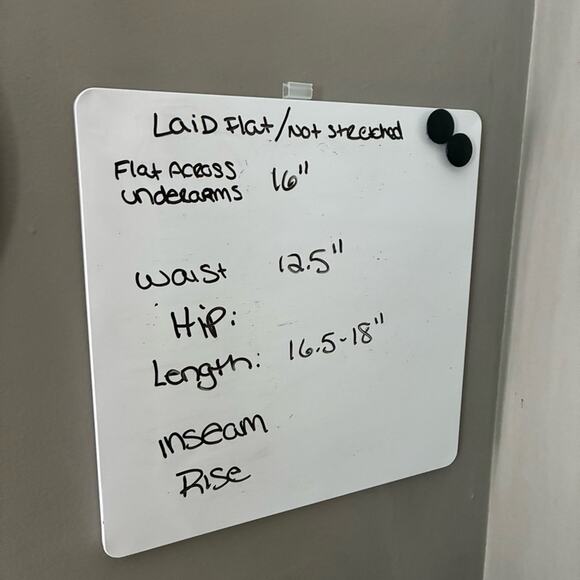 Laid Flat/Not Stretched
Flat Across 16"
underarms
Waist 12.5"
Hip:
Length: 16.5-18"
inseam
Rise